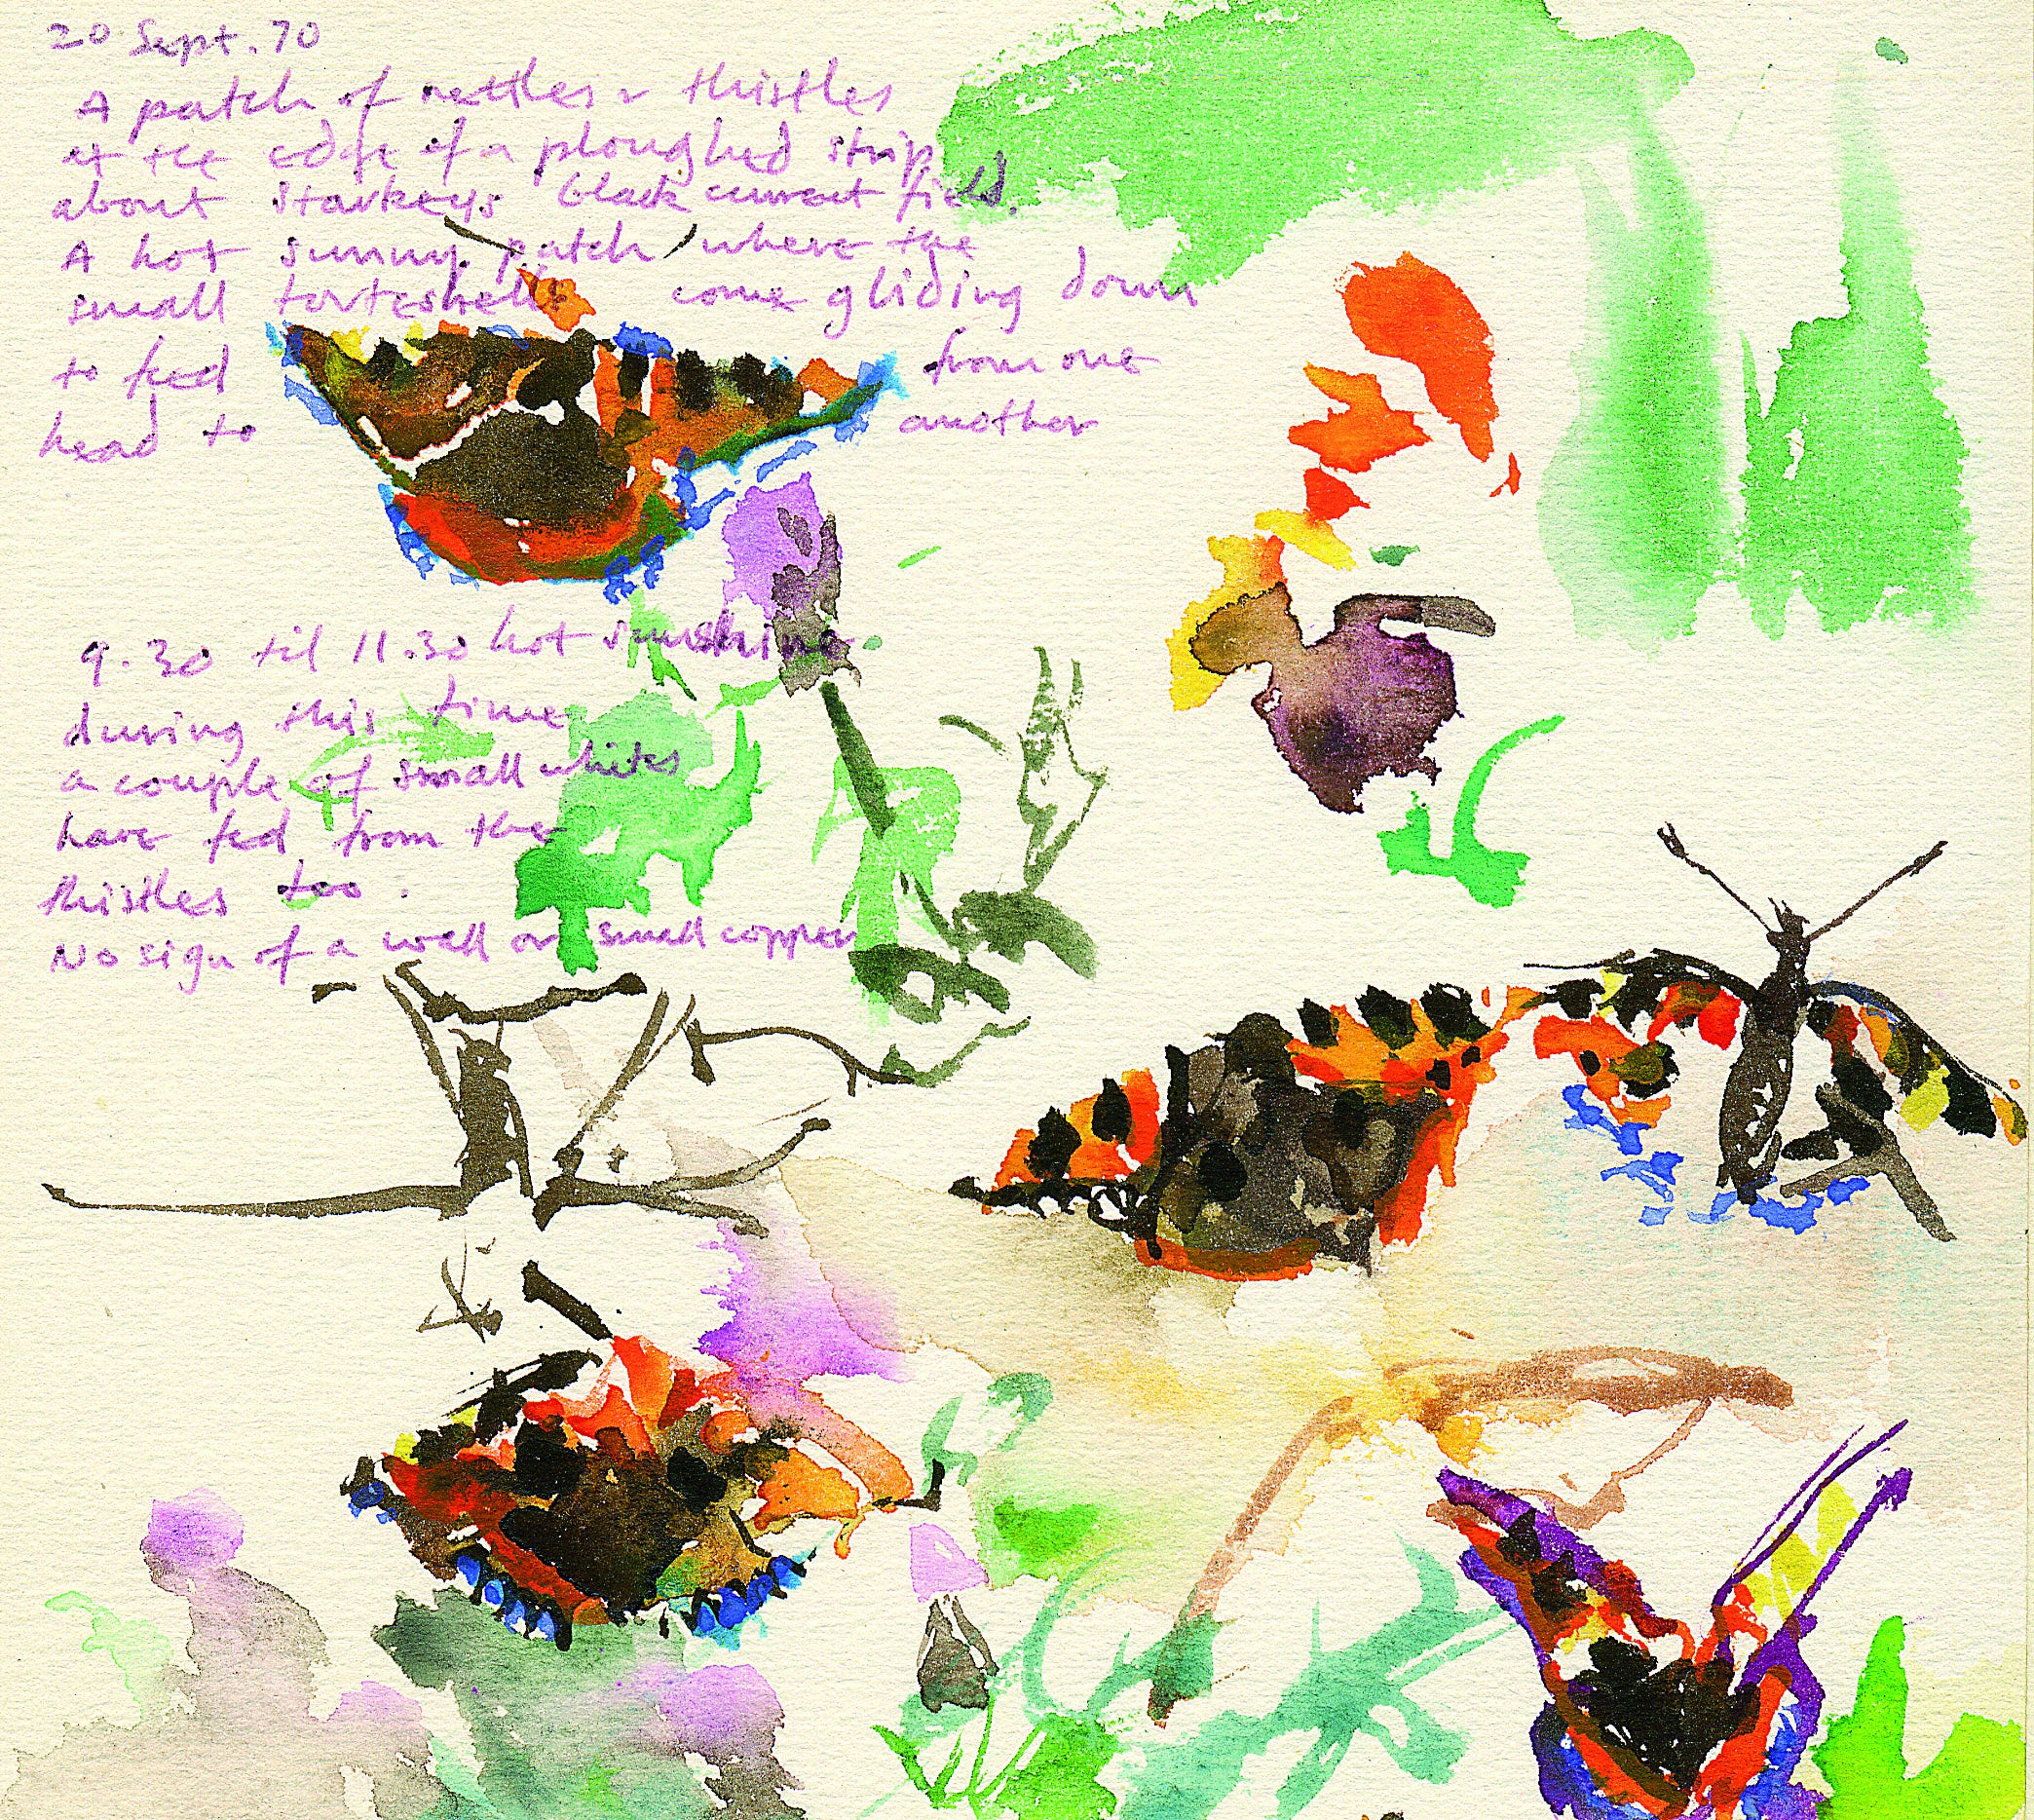 20 Sept. 70
A patch of nettles & thistles
at the edge of a ploughed strip
about Starkeys blackcurrant field.
A hot sunny patch where the
small tortoshells come gliding down
to feed from one
head to another
9.30 til 11.30 hot sunshine
during this time
a couple of small whites
have fed from the
thistles too.
No sign of a wall or small copper